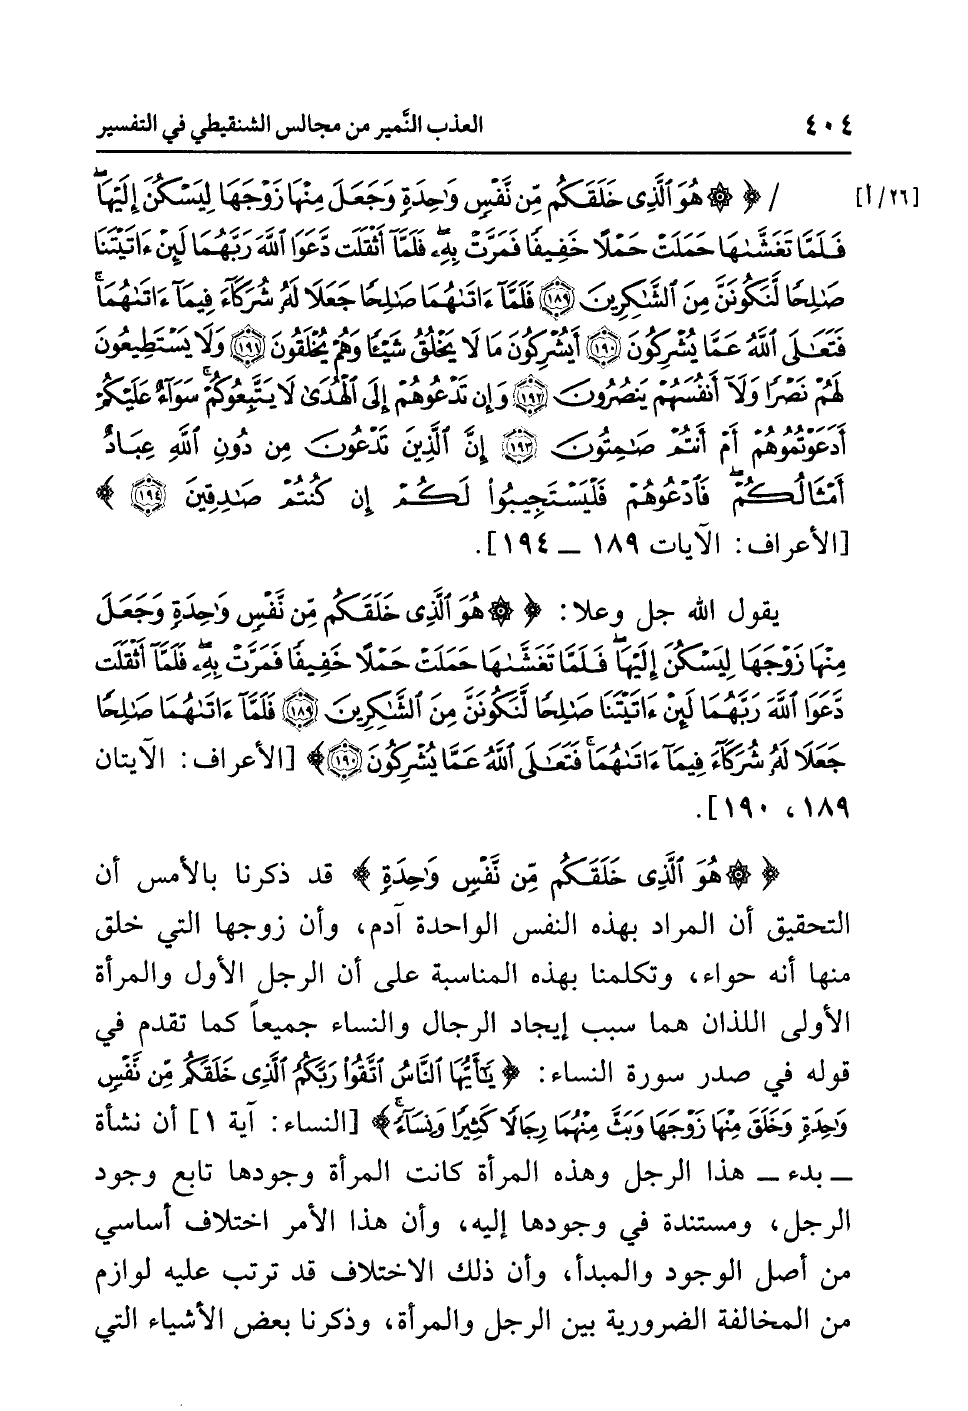 ٤٠٤ العذب النَّمير من مجالس الشنقيطي في التفسير
[٢٦/أ] / ﴿ ۞ هُوَ ٱلَّذِى خَلَقَكُم مِّن نَّفْسٍ وَٰحِدَةٍ وَجَعَلَ مِنْهَا زَوْجَهَا لِيَسْكُنَ إِلَيْهَا ۖ
فَلَمَّا تَغَشَّىٰهَا حَمَلَتْ حَمْلًا خَفِيفًا فَمَرَّتْ بِهِۦ ۖ فَلَمَّآ أَثْقَلَت دَّعَوَا ٱللَّهَ رَبَّهُمَا لَئِنْ ءَاتَيْتَنَا
صَٰلِحًا لَّنَكُونَنَّ مِنَ ٱلشَّٰكِرِينَ ١٨٩ فَلَمَّآ ءَاتَىٰهُمَا صَٰلِحًا جَعَلَا لَهُۥ شُرَكَآءَ فِيمَآ ءَاتَىٰهُمَا ۚ
فَتَعَٰلَى ٱللَّهُ عَمَّا يُشْرِكُونَ ١٩٠ أَيُشْرِكُونَ مَا لَا يَخْلُقُ شَيْـًٔا وَهُمْ يُخْلَقُونَ ١٩١ وَلَا يَسْتَطِيعُونَ
لَهُمْ نَصْرًا وَلَآ أَنفُسَهُمْ يَنصُرُونَ ١٩٢ وَإِن تَدْعُوهُمْ إِلَى ٱلْهُدَىٰ لَا يَتَّبِعُوكُمْ ۚ سَوَآءٌ عَلَيْكُمْ
أَدَعَوْتُمُوهُمْ أَمْ أَنتُمْ صَٰمِتُونَ ١٩٣ إِنَّ ٱلَّذِينَ تَدْعُونَ مِن دُونِ ٱللَّهِ عِبَادٌ
أَمْثَالُكُمْ ۖ فَٱدْعُوهُمْ فَلْيَسْتَجِيبُوا۟ لَكُمْ إِن كُنتُمْ صَٰدِقِينَ ١٩٤ ﴾
[الأعراف: الآيات ١٨٩ ــ ١٩٤].
يقول الله جل وعلا: ﴿ ۞ هُوَ ٱلَّذِى خَلَقَكُم مِّن نَّفْسٍ وَٰحِدَةٍ وَجَعَلَ
مِنْهَا زَوْجَهَا لِيَسْكُنَ إِلَيْهَا ۖ فَلَمَّا تَغَشَّىٰهَا حَمَلَتْ حَمْلًا خَفِيفًا فَمَرَّتْ بِهِۦ ۖ فَلَمَّآ أَثْقَلَت
دَّعَوَا ٱللَّهَ رَبَّهُمَا لَئِنْ ءَاتَيْتَنَا صَٰلِحًا لَّنَكُونَنَّ مِنَ ٱلشَّٰكِرِينَ ١٨٩ فَلَمَّآ ءَاتَىٰهُمَا صَٰلِحًا
جَعَلَا لَهُۥ شُرَكَآءَ فِيمَآ ءَاتَىٰهُمَا ۚ فَتَعَٰلَى ٱللَّهُ عَمَّا يُشْرِكُونَ ١٩٠ ﴾ [الأعراف: الآيتان
١٨٩، ١٩٠].
﴿ ۞ هُوَ ٱلَّذِى خَلَقَكُم مِّن نَّفْسٍ وَٰحِدَةٍ ﴾ قد ذكرنا بالأمس أن
التحقيق أن المراد بهذه النفس الواحدة آدم، وأن زوجها التي خلق
منها أنه حواء، وتكلمنا بهذه المناسبة على أن الرجل الأول والمرأة
الأولى اللذان هما سبب إيجاد الرجال والنساء جميعاً كما تقدم في
قوله في صدر سورة النساء: ﴿ يَٰٓأَيُّهَا ٱلنَّاسُ ٱتَّقُوا۟ رَبَّكُمُ ٱلَّذِى خَلَقَكُم مِّن نَّفْسٍ
وَٰحِدَةٍ وَخَلَقَ مِنْهَا زَوْجَهَا وَبَثَّ مِنْهُمَا رِجَالًا كَثِيرًا وَنِسَآءً ۚ ﴾ [النساء: آية ١] أن نشأة
ــ بدء ــ هذا الرجل وهذه المرأة كانت المرأة وجودها تابع وجود
الرجل، ومستندة في وجودها إليه، وأن هذا الأمر اختلاف أساسي
من أصل الوجود والمبدأ، وأن ذلك الاختلاف قد ترتب عليه لوازم
من المخالفة الضرورية بين الرجل والمرأة، وذكرنا بعض الأشياء التي